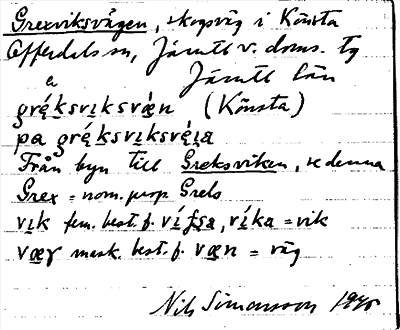 Grexviksvägen, skogsväg i Könsta
Offerdals sn, Jämtl. v. doms. tg
Jämtl län
a
gréksviksvæn (Könsta)
pa gréksviksvéia
Från byn till Greksviken, se denna
Grex = nom. prop. Grels
vik fem. best. f. víʃa, víka = vik
væg mask. best. f. væn = väg
Nils Simonsson 1945